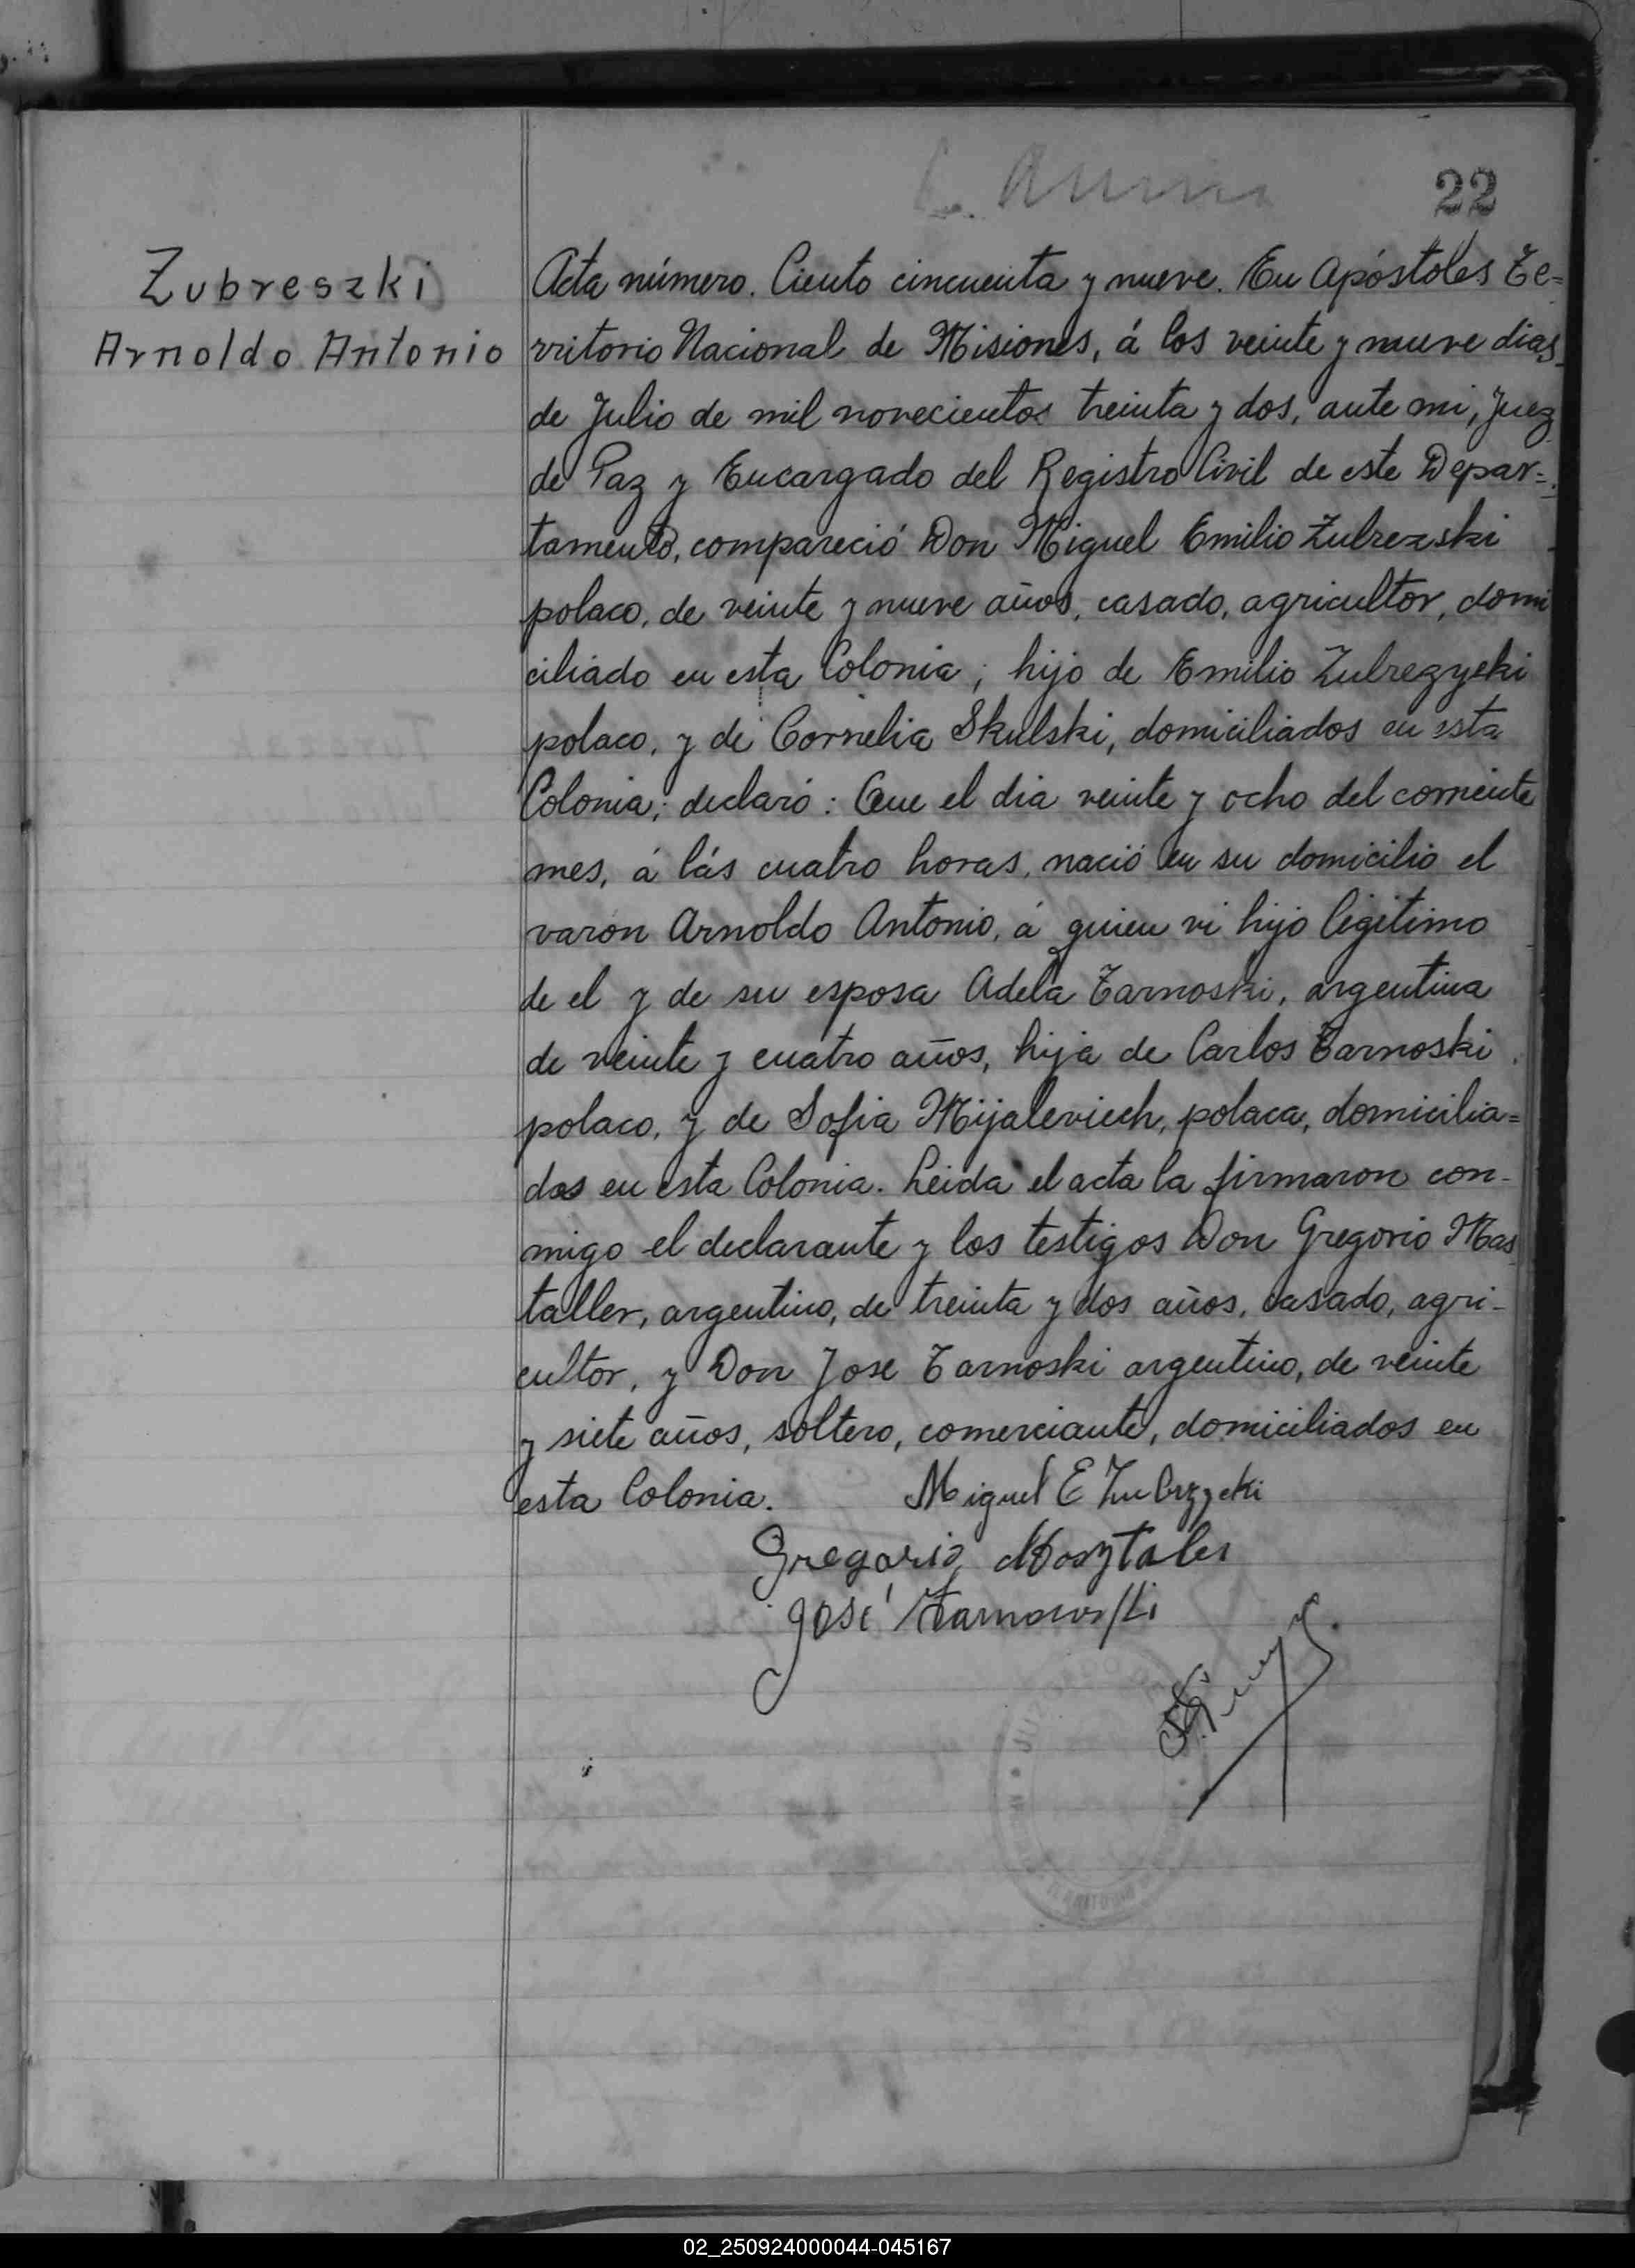 22
Zubreszki
Arnoldo Antonio
Acta número. Ciento cincuenta y nueve. En Apóstoles Te=
rritorio Nacional de Misiones, á los veinte y nueve dias
de Julio de mil novecientos treinta y dos, ante mi, Juez
de Paz y Encargado del Registro Civil de este Depar=
tamento, compareció Don Miguel Emilio Zubrezski
polaco, de veinte y nueve años, casado, agricultor, domi
ciliado en esta Colonia; hijo de Emilio Zubrezycki
polaco, y de Cornelia Skulski, domiciliados en esta
Colonia; declaró: Que el dia veinte y ocho del corriente
mes, á lás cuatro horas, nació en su domicilio el
varon Arnoldo Antonio, á quien vi hijo legitimo
de el y de su esposa Adela Tarnoski, argentina
de veinte y cuatro años, hija de Carlos Tarnoski
polaco, y de Sofia Mijaleviech, polaca, domicilia=
dos en esta Colonia. Leida el acta la firmaron con-
migo el declarante y los testigos Don Gregorio Mas
taller, argentino, de treinta y dos años, casado, agri-
cultor, y Don Jose Tarnoski argentino, de veinte
y siete años, soltero, comerciante, domiciliados en
esta Colonia.
Miguel E Zubrzycki
Gregorio Mosztaler
José Tarnowski
JUZGADO DE
TERRITORIO
02_250924000044-045167